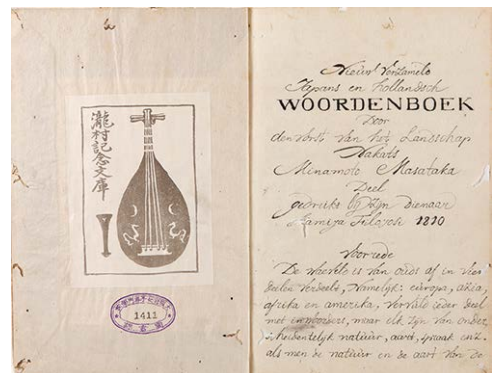 瀧村記念文庫
1411
Nieuw Verzameld
Japans en Hollandsch
WOORDENBOEK
Door
den vorst van het Landschap
Nakats
Minamoto Masataka
Deel
gedrukt bij zijn dienaar
Kamija Filojosi 1810
Voorrede
De waerelt is van ouds af in vier
deelen verdeelt, namelijk: europa, asia,
afrika en amerika, vervult ieder deel
met inwooners, maar elk zijn van onder
scheidentlyk natuur, aart, spraak enz.
als men de natuur en de aart van de